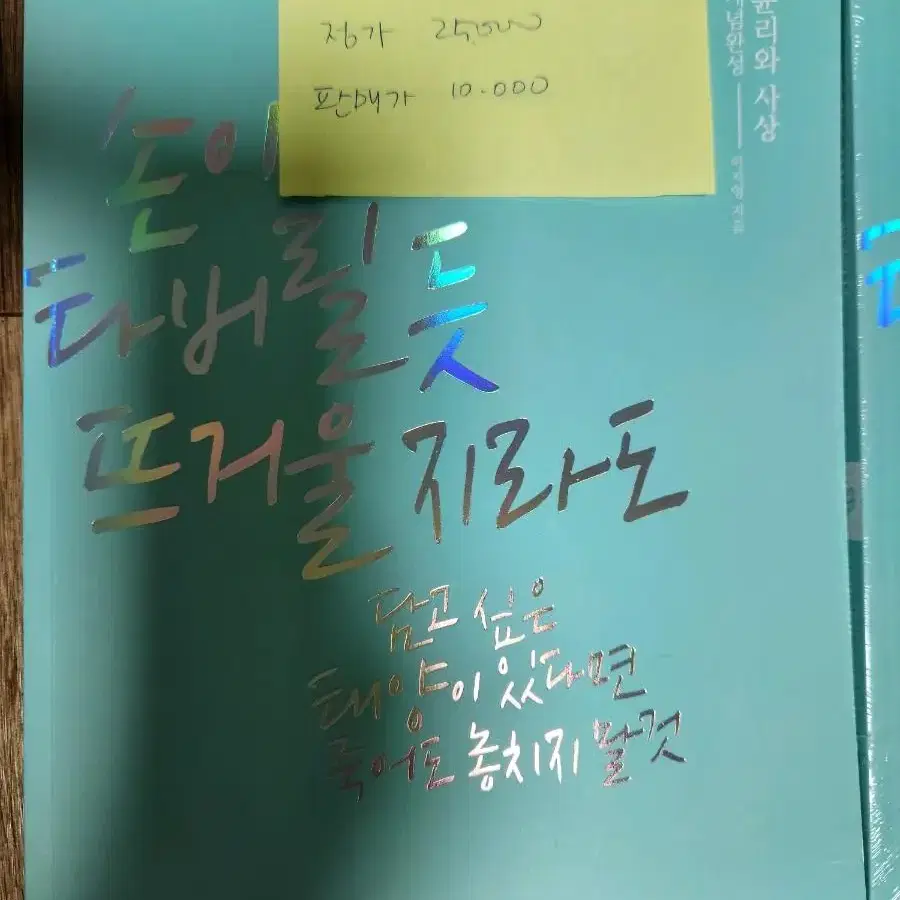 정가 25,000
판매가 10.000
윤리와 사상
개념완성
이지영 지음
손이
타버릴 듯
뜨거울지라도
담고 싶은
태양이 있다면
죽어도 놓치지 말 것